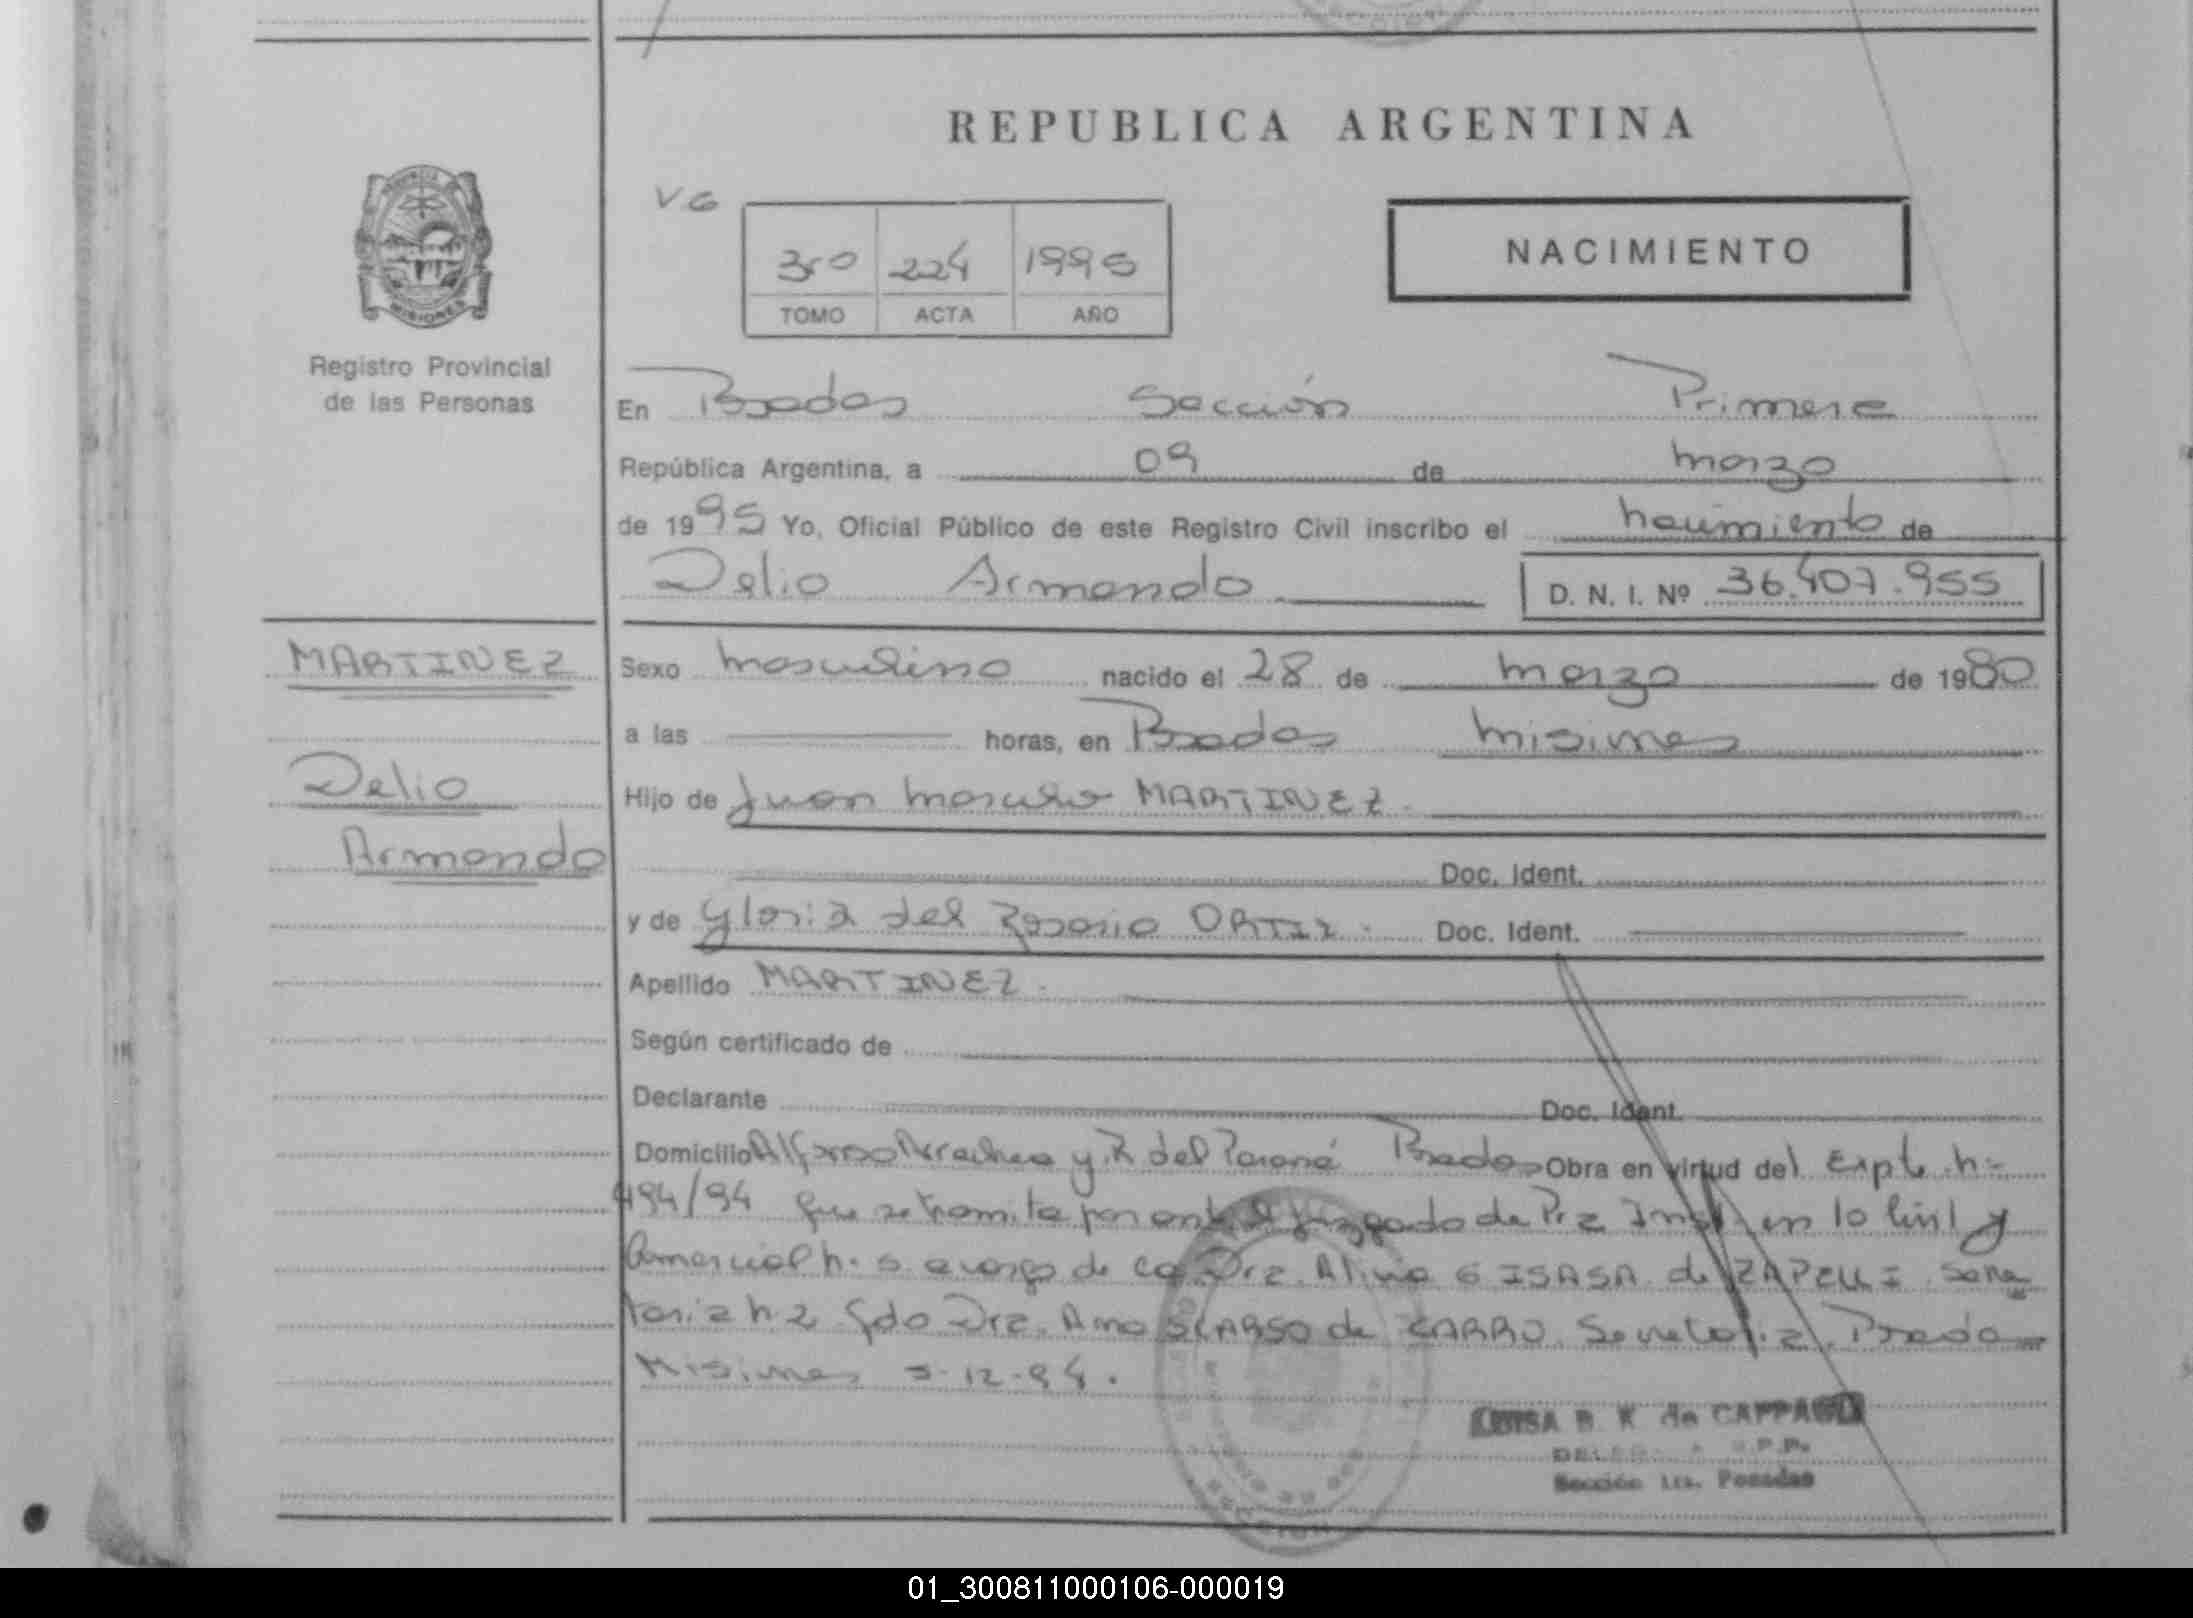 REPUBLICA ARGENTINA
MISIONES
Registro Provincial
de las Personas
VG
3ro 224 1995
TOMO ACTA AÑO
NACIMIENTO
En Posadas Sección Primera
República Argentina, a 09 de marzo
de 1995 Yo, Oficial Público de este Registro Civil inscribo el nacimiento de
Delio Armando
D. N. I. Nº 36.407.955
MARTINEZ
Delio
Armando
Sexo masculino nacido el 28 de marzo de 1980
a las horas, en Posadas Misiones
Hijo de Juan MARTINEZ
Doc. Ident.
y de Gloria del Rosario ORTIZ. Doc. Ident.
Apellido MARTINEZ.
Según certificado de
Declarante Doc. Ident.
Domicilio y R. del Paraná Posadas Obra en virtud del Expte. n=
494/94 que se tramita por ante el Juzgado de Pra Inst. en lo Civil y
Comercial n. 5 a cargo de Dra. G ISASA de ZAPELLI Secre
taria n 2 fdo Dra. de ZARRO. Secretaria. Posadas
Misiones 5-12-94.
LUISA B. K. de CAPPA
R.P.P.
Sección 1ra. Posadas
01_300811000106-000019